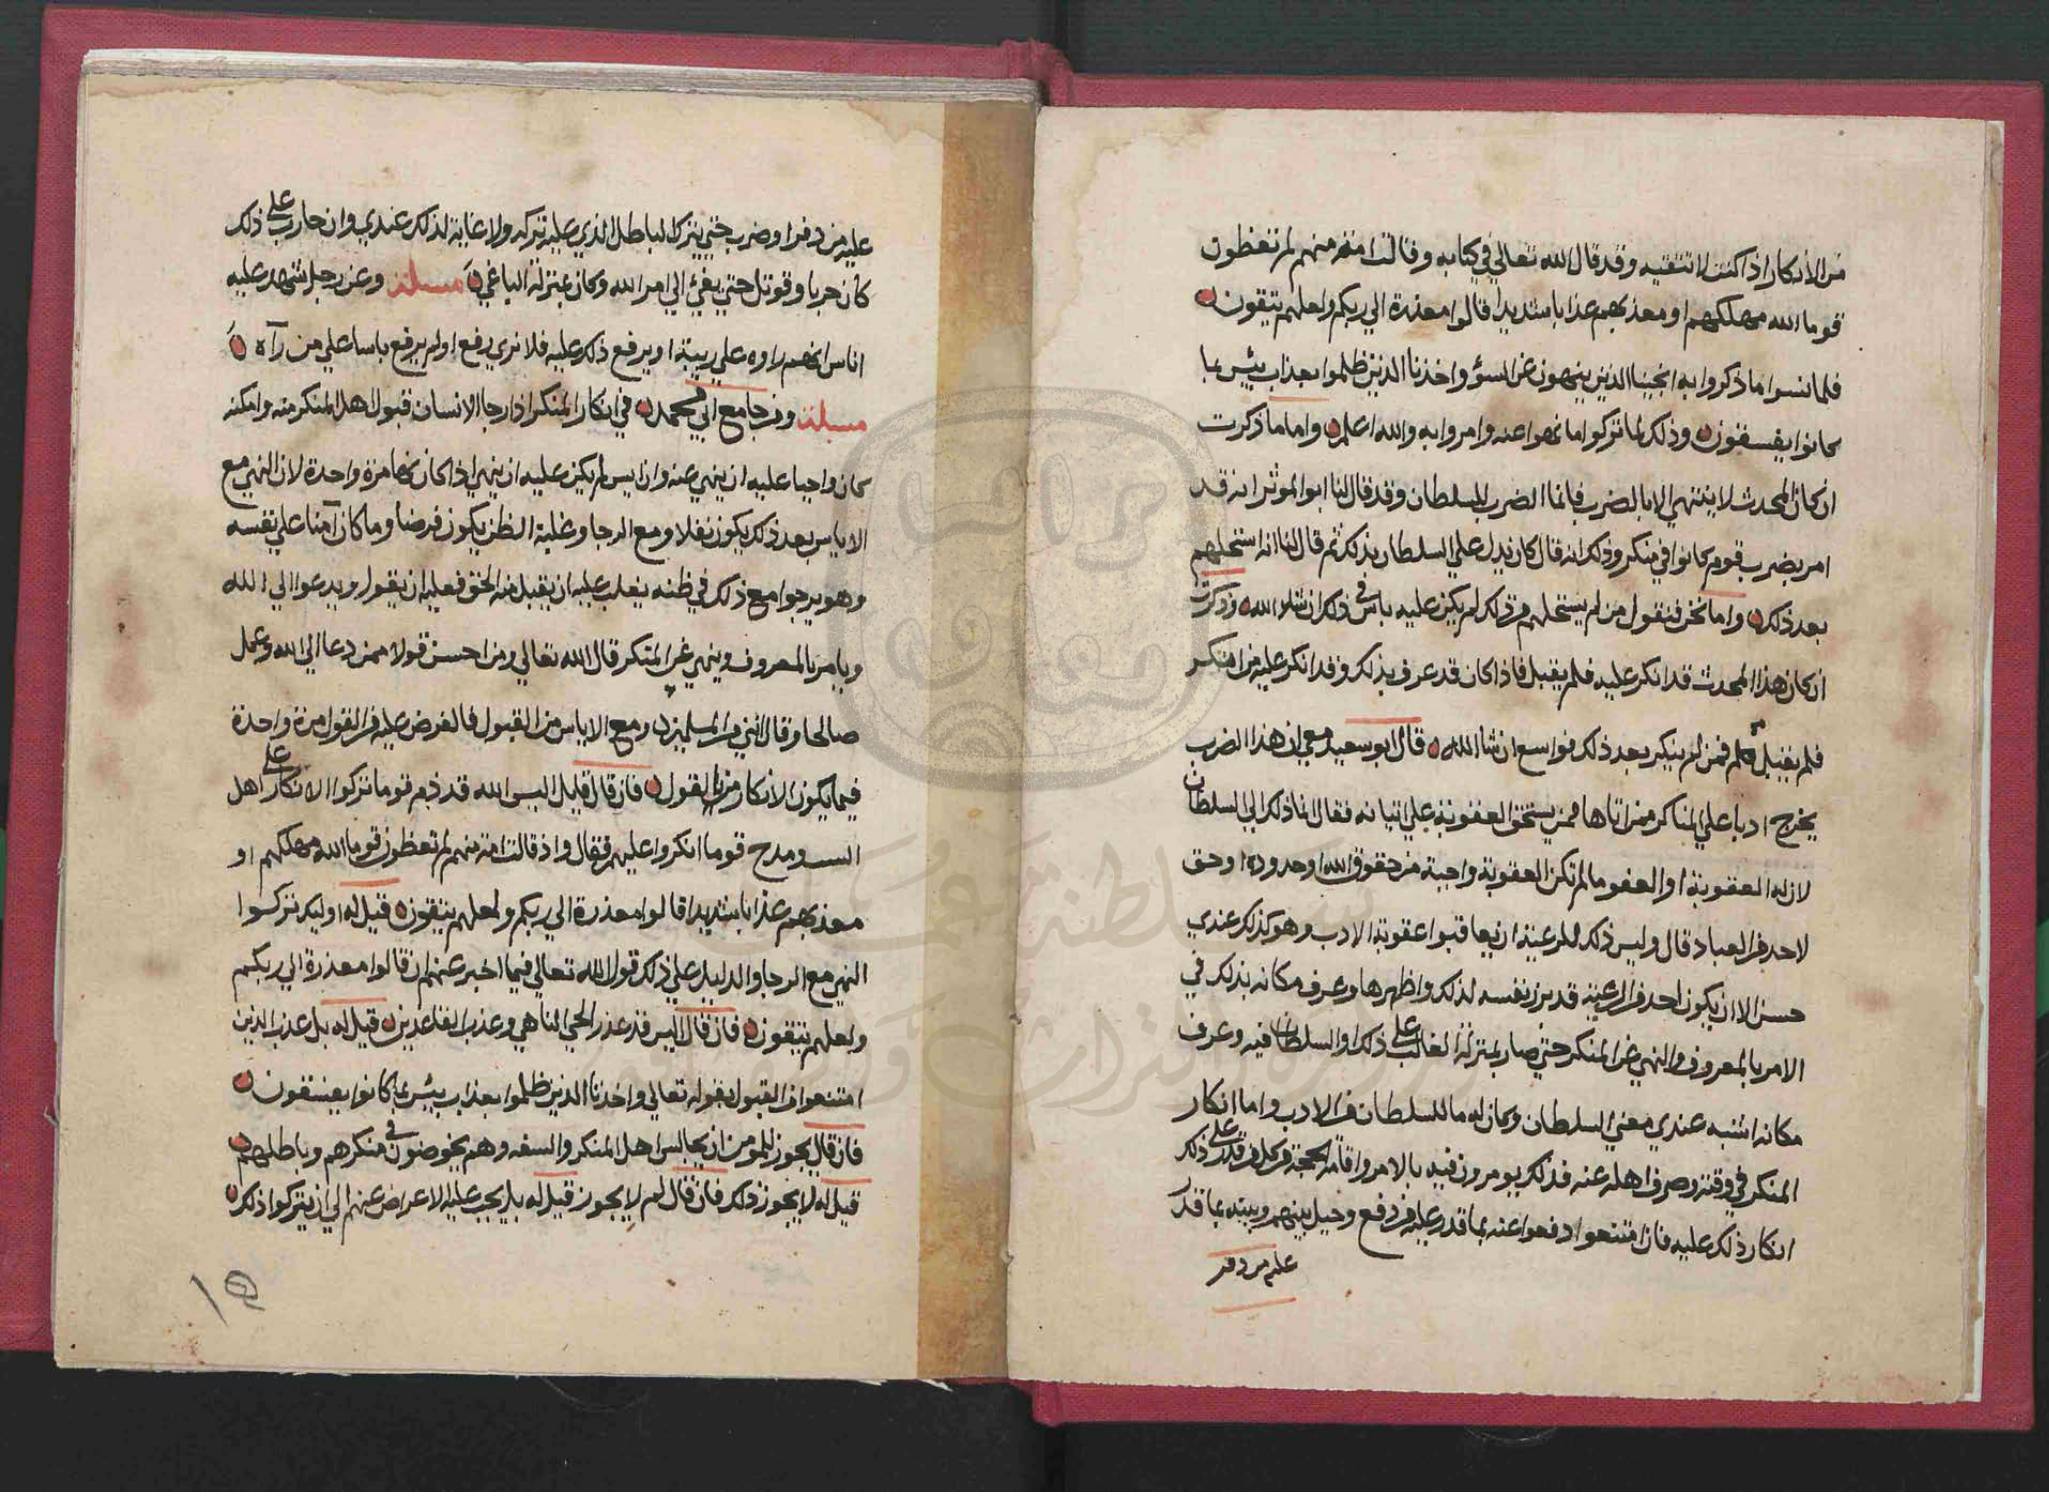 من الانكار اذا كنت لا تتقيه وقد قال الله تعالي في كتابه وقالت امة منهم لم تعظون
قوما الله مهلكهم او معذبهم عذابا شديدا قالوا معذرة الي ربكم ولعلهم يتقون
فلما نسوا ما ذكروا به انجينا الذين ينهون عن السؤ واخذنا الذين ظلموا بعذاب بئيس بما
كانوا يفسقون وذلك لما تركوا ما نهوا عنه وامروا به والله اعلم واما ما ذكرت
ان كان المحدث لا ينتهي الا بالضرب فانما الضرب للسلطان وقد قال لنا ابو الموثر انه قد
امر بضرب قوم كانوا في منكر وذلك انه قال كان يدل علي السلطان بذلك ثم قال لنا انه استحلهم
بعد ذلك واما نحن فنقول من لم يستحلهم من ذلك لم يكن عليه باس في ذلك ان شاء الله وذكرت
ان كان هذا المحدث قد انكر عليه فلم يقبل فاذا كان قد عرف بذلك وقد انكر عليه من انكر
فلم يقبل فمن لم ينكر بعد ذلك فواسع ان شا الله قال ابو سعيد معي ان هذا الضرب
يخرج ادبا علي المناكر ممن اتاها فمن يستحق العقوبة علي اتيانه فقال انما ذلك الي السلطان
لان له العقوبة او العفو ما لم تكن العقوبة واجبة من حقوق الله او حدوده او حق
لاحد من العباد قال وليس ذلك للرعية ان يعاقبوا عقوبة الادب وهو كذلك عندي
حسن الا ان يكون احد من الرعية قد برز نفسه لذلك واظهرها وعرف مكانه بذلك في
الامر بالمعروف والنهي عن المنكر حتي صار بمنزلة الغالب علي ذلك والسلطان فيه وعرف
مكانه اشبه عندي معني السلطان وكان له ما للسلطان من الادب واما انكار
المنكر في وقته وصرف اهله عنه فذلك يومرون فيه بالامر واقامة الحجة من كل من قدر علي ذلك
انكار ذلك عليه فان امتنعوا دفعوا عنه بما قدر عليه من دفع وحيل بينهم وبينه بما قدر
عليه من دفر
عليه من دفر او ضرب حتي يترك الباطل الذي عليه تركه ولا غاية لذلك عندي وان حارب علي ذلك
كان حربا وقوتل حتي يفئ الي امر الله وكان بمنزلة الباغي مسئلة وعن رجل شهد عليه
اناس انهم راوه علي ريبة او يرفع ذلك عليه فلا نري يرفع او لم يرفع باسا علي من رآه
مسئلة ومن جامع ابي محمد في انكار المنكر اذا رجا الانسان قبول اهل المنكر منه وامكنه
كان واجبا عليه ان ينهي عنه وان ايس لم يكن عليه ان ينهي اذا كان نها مرة واحدة لان النهي مع
الاياس بعد ذلك يكون نفلا ومع الرجا وغلبة الظن يكون فرضا وما كان آمنا علي نفسه
وهو يرجوا مع ذلك في ظنه يغلب عليه ان يقبل منه الحق فعليه ان يقول ويدعوا الي الله
ويامر بالمعروف وينهي عن المنكر قال الله تعالي ومن احسن قولا ممن دعا الي الله وعمل
صالحا وقال انني من المسلمين ومع الاياس من القبول فالفرض عليه من القول مرة واحدة
فيما يكون الانكار من القول فان قال قايل اليس الله قد ذم قوما تركوا الانكار علي اهل
السو ومدح قوما انكروا عليهم فقال واذ قالت امة منهم لم تعظون قوما الله مهلكهم او
معذبهم عذابا شديدا قالوا معذرة الي ربكم ولعلهم يتقون قيل له اوليك تركوا
النهي مع الرجا والدليل علي ذلك قول الله تعالي فيما اخبر عنهم ان قالوا معذرة الي ربكم
ولعلهم يتقون فان قال اليس قد عذر الحي الناهي وعذب القاعدين قيل له بل عذب الذين
امتنعوا من القبول بقوله تعالي واخذنا الذين ظلموا بعذاب بئيس بما كانوا يفسقون
فان قال يجوز للمومن ان يجالس اهل المنكر والسفه وهم يخوضون في منكرهم وباطلهم
قيل له لا يجوز ذلك فان قال لم لا يجوز قيل له بل يجب عليه الاعراض عنهم الي ان يتركوا ذلك